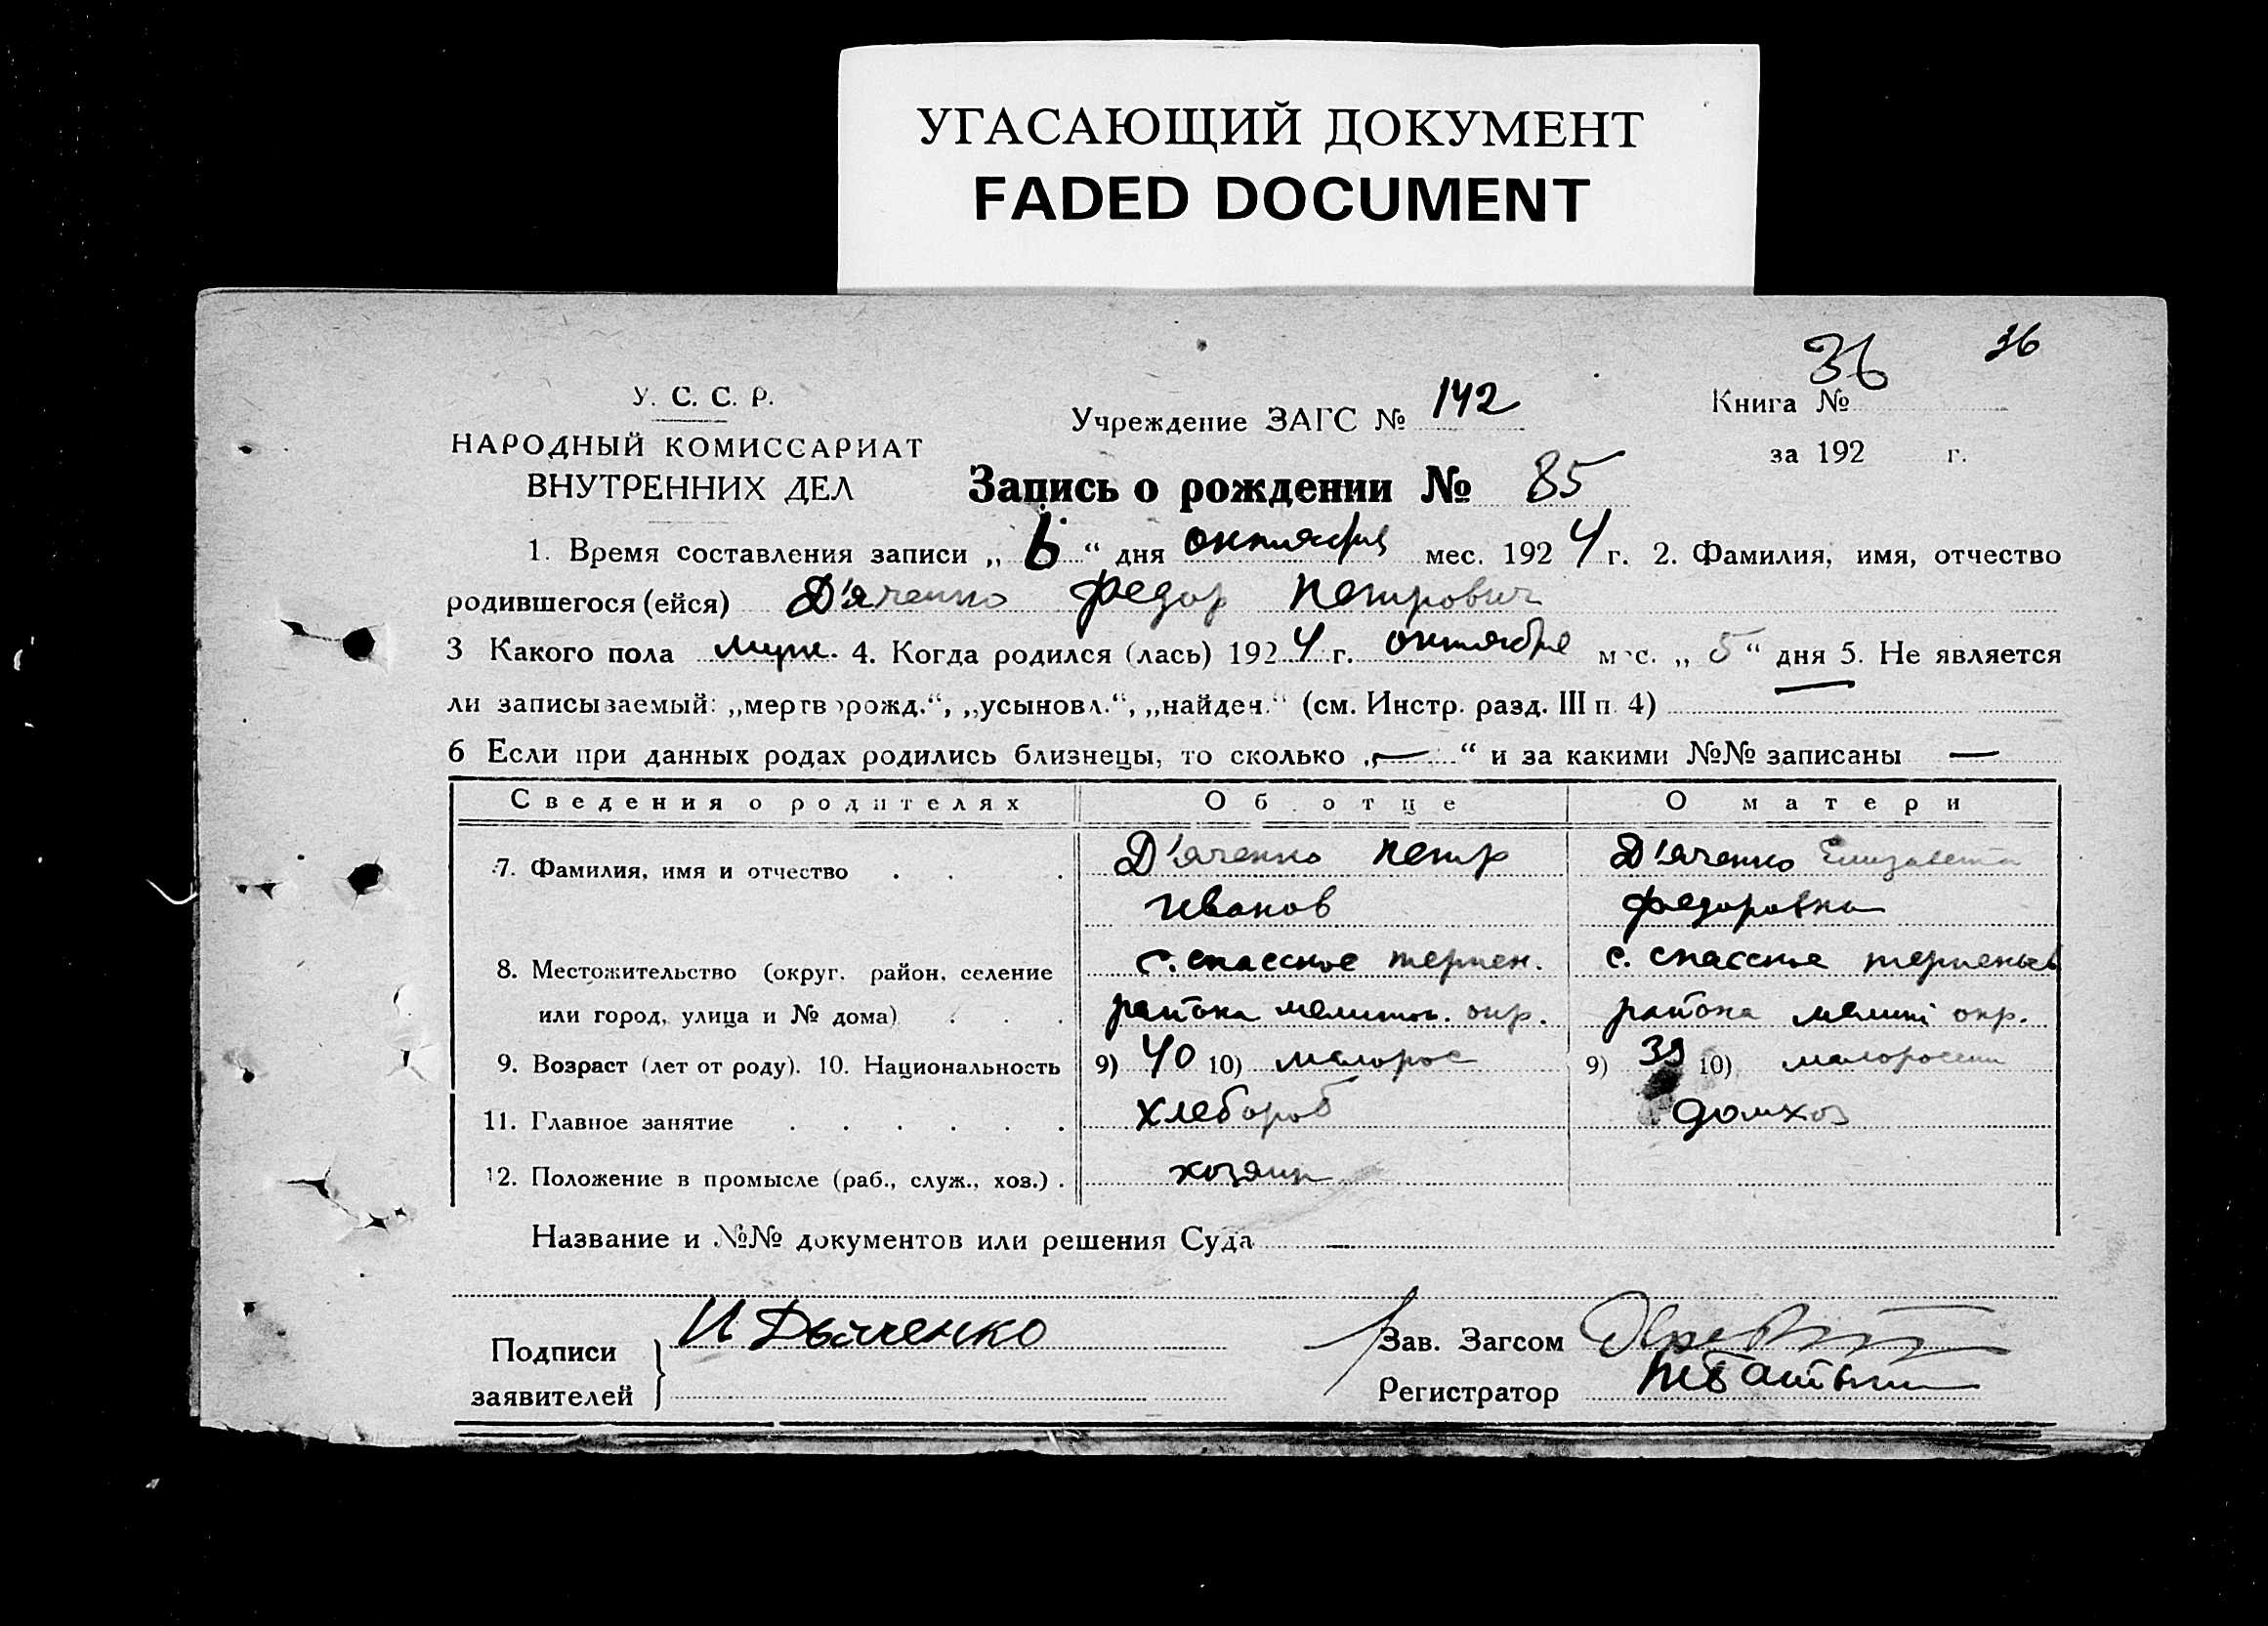 УГАСАЮЩИЙ ДОКУМЕНТ
FADED DOCUMENT
36
36
У. С. С. Р.
НАРОДНЫЙ КОМИССАРИАТ
ВНУТРЕННИХ ДЕЛ
Учреждение ЗАГС № 142
Книга №
за 192 г.
Запись о рождении № 85
1. Время составления записи „ 6 “ дня октября мес. 1924 г. 2. Фамилия, имя, отчество
родившегося (ейся) Д'яченко Федор Петрович
3 Какого пола муж. 4. Когда родился (лась) 1924 г. октября мес. „ 5 “ дня 5. Не является
ли записываемый: „мертворожд.“, „усыновл.“, „найден.“ (см. Инстр. разд. III п. 4) —
6 Если при данных родах родились близнецы, то сколько „ — “ и за какими №№ записаны —
Сведения о родителях Об отце О матери
7. Фамилия, имя и отчество . . . Д'яченко Петр Д'яченко Елизавета
Иванов Федоровна
8. Местожительство (округ, район, селение с. Спасское терпен. с. Спасское терпеньев
или город, улица и № дома) . . . района мелитоп. окр. района мелит окр.
9. Возраст (лет от роду). 10. Национальность 9) 40 10) малорос 9) 39 10)
11. Главное занятие . . . . . . хлебороб домхоз
12. Положение в промысле (раб., служ., хоз.) . хозяин
Название и №№ документов или решения Суда —
Подписи заявителей } И Дьяченко
Зав. Загсом
Регистратор